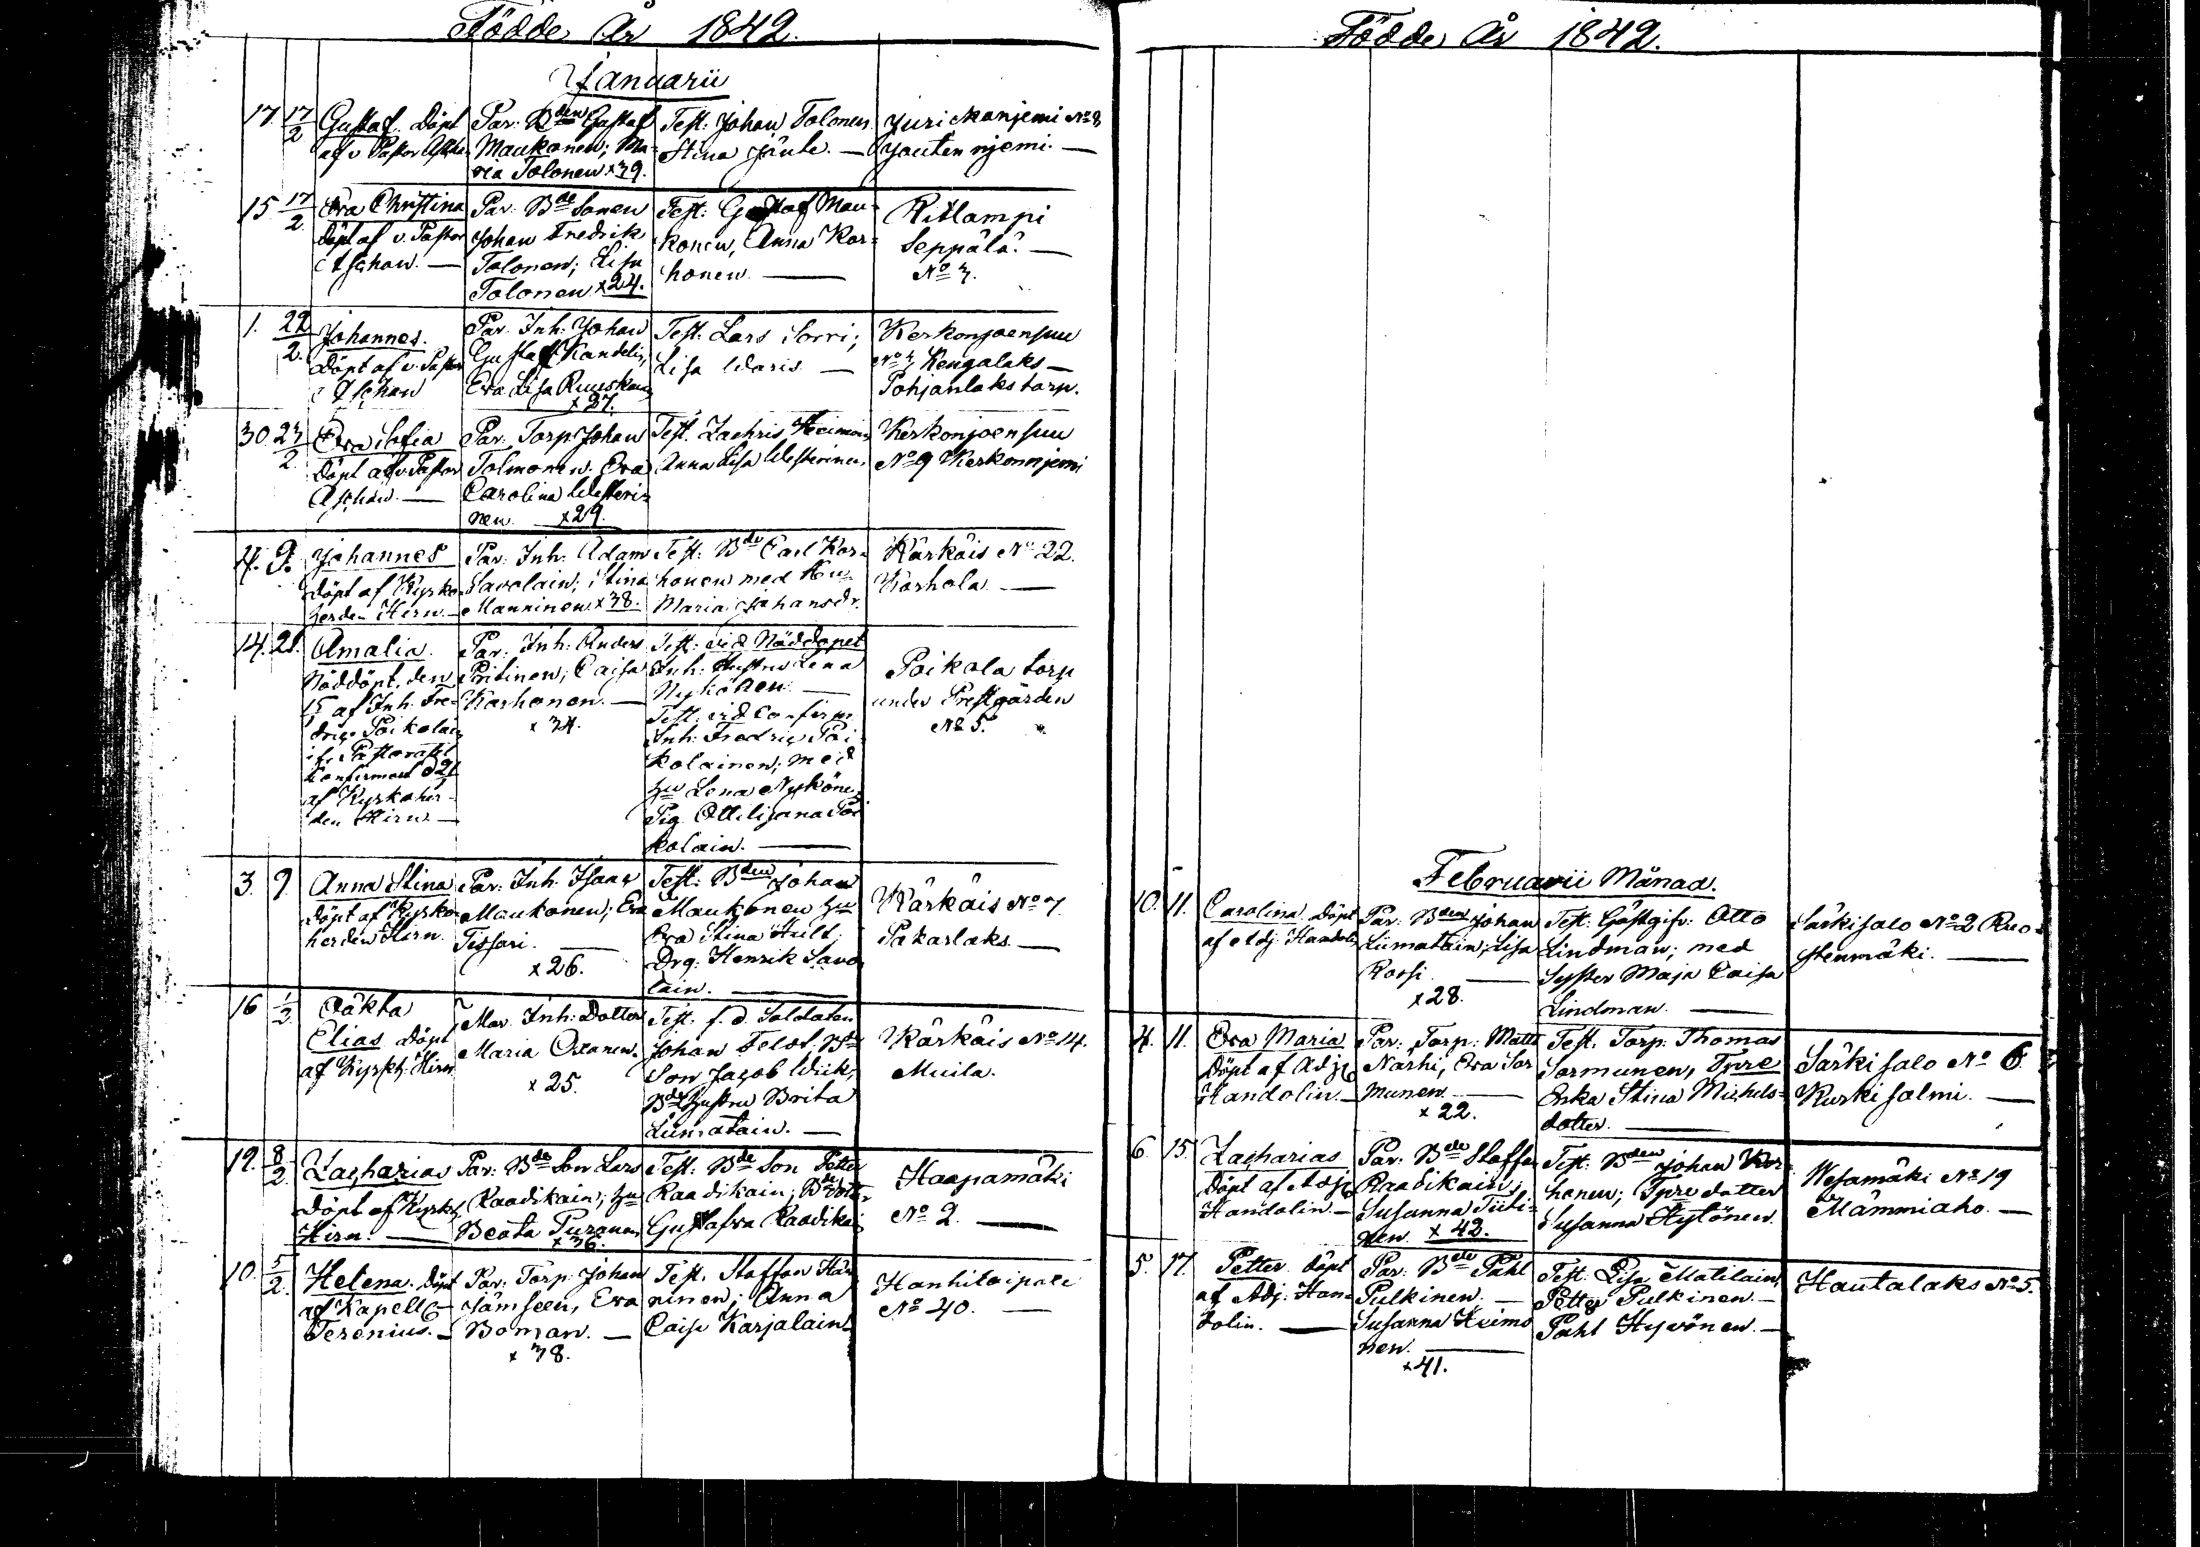 Födde År 1842.
Januarii
17. 17/2 Gustaf. Döpt
af v. Pastor
Par: Bden Gustaf
Maukonen; Ma-
ria Tolonen x39.
Test: Johan Tolonen
Stina Jäntt. —
Jurickanjemi No 8
Jautennjemi. —
15 17/2 Eva Christina
döpt af v. Pastor
Aschan. —
Par: Bde Sonen
Johan Fredrik
Tolonen; Lisa
Tolonen x24.
Test: Gustaf Mau-
konen, Anna Kor-
honen. —
Ritlampi
Seppälä. —
No 3.
1. 22/2. Johannes.
Döpt af v. Pastor
Aschan
Par. Inh: Johan
Gustaf Kandelin,
Eva Lisa Ruuskan
x37.
Test. Lars Sorri;
Lisa Waris —
Kerkonjoensuu
No 3 Kengalaks —
Pohjanlaks torp.
30. 23/2 Eva Sofia
Döpt af v. Pastor
Aschan. —
Par: Torp Johan
Tolmonen. Eva
Carolina Westeri-
nen. x29.
Test. Zachris Heimon
Anna Lisa Westerinen
Kerkonjoensuu
No 9 Kerkonnjemi
4. 9. Johannes
Döpt af Kyrko-
herden Hirn. —
Par: Inh: Adam
Savolain; Stina
Manninen x38.
Test: Bde Carl Kor-
honen med Hu
Maria Johansdr.
Kärkäis No 22.
Korhola —
14. 21. Amalia.
Nöddöpt. den
15 af Inh: Fre-
dric Poikolain
Konfirmerad d 21
af Kyrkoher-
den Hirn —
Par: Inh: Anders
Pitinen; Caisa
Karhonen. —
x34.
Test: vid Nöddopet
Inh: Hustru Lena
Nykönen. —
Test: vid Confirm.
Inh: Fredric Poi-
kolainen; med
Hu Lena Nykönen
Pig. Ottilijana Poi
kolain. —
Poikola torp
under Prestgården
No 5.
3. 9. Anna Stina
Döpt af Kyrko-
herden Hirn.
Par: Inh: Isaac
Maukonen; Eva
Tissari. —
x26.
Test: Bden Johan
Maukonen Hu
Eva Stina Hult;
Drg: Henrik Savo
lain. —
Kärkäis No 7
Pakarlaks. —
16 1/2 Oäkta
Elias Döpt
af Kyrkh. Hirn
Mor Inh: Dotter
Maria Oxanen.
x25.
Test. f.d. Soldaten
Johan Felot. Bde
Son Jacob Wiik,
Bde Hustru Brita
Liimatain. —
Kärkäis No 14.
Muila.
19. 8/2. Zacharias
Döpt af Kyrkh
Hirn. —
Par: Bde Son Lars
Raadikain; Hu
Beata Puranen
x36.
Test: Bde Son Petter
Raadikain; Bde Dotter
Gustafva Raadikai
Haapamäki
No 2. —
10. 5/2. Helena. Döpt
af Kapell
Ferenius. —
Par: Torp. Johan
Jämseen, Eva
Boman. —
x38.
Test. Staffan Hän
ninen; Anna
Caisa Karjalain
Hanhitaipale
No 40. —
Födde År 1842.
Februarii Månad.
10. 11. Carolina döpt
af Adj. Handolin
Par: Bden Johan
Liimatain; Lisa
Korsi —
x28.
Test: Gästgifv: Otto
Lindman; med
Syster Maja Caisa
Lindman. —
Särkisalo No 2 Ruo-
stenmäki. —
4. 11. Eva Maria
Döpt af Adj
Handolin. —
Par: Torp: Matts
Närhi, Eva Sor
munen. —
x22.
Test. Torp: Thomas
Sormunen, Tpre
Erka Stina Michels-
dotter. —
Särkisalo No 6.
Kurkisalmi. —
6. 15. Zacharias
Döpt af Adj
Handolin. —
Par: Bde Staffan
Raadikain;
Susanna Tiiti-
nen. x42.
Test: Bden Johan Kor
honen; Tpre dotter
Susanna Hytönen.
Wesamäki No 19
Mämmiaho. —
5. 17. Petter döpt
af Adj: Han-
dolin. —
Par: Bde Pahl
Pulkinen. —
Susanna Heimo
nen. —
x41.
Test: Lisa Matilain
Petter Pulkinen. —
Pahl Hyvönen. —
Hautalaks No 5.